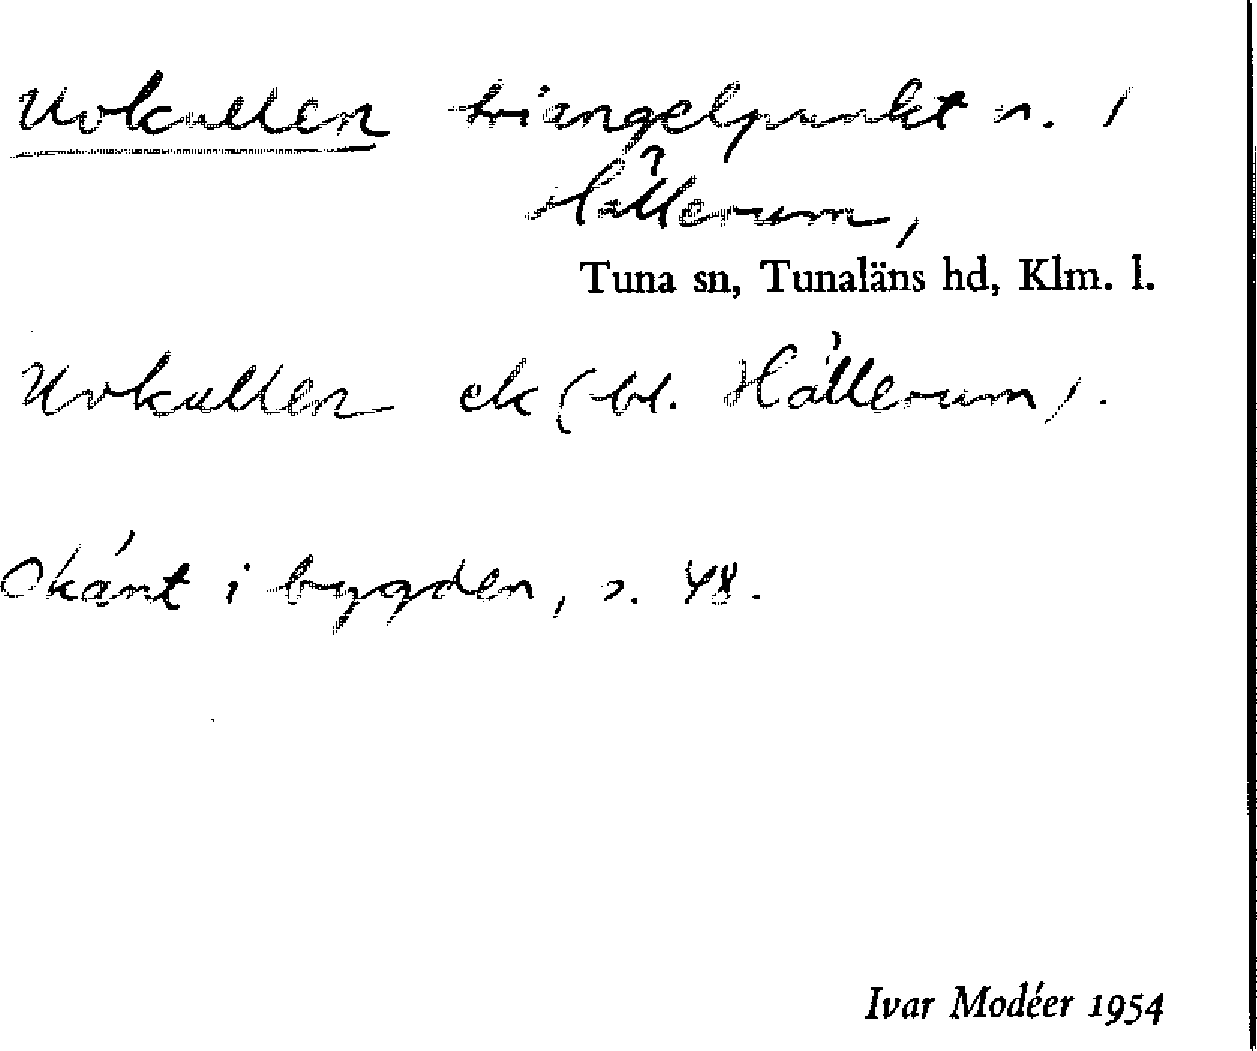 Uvkullen triangelpunkt n. i
Hällerum,
Tuna sn, Tunaläns hd, Klm. l.
Uvkullen ek (bl. Hällerum).
Okänt i bygden, s. 48.
Ivar Modéer 1954